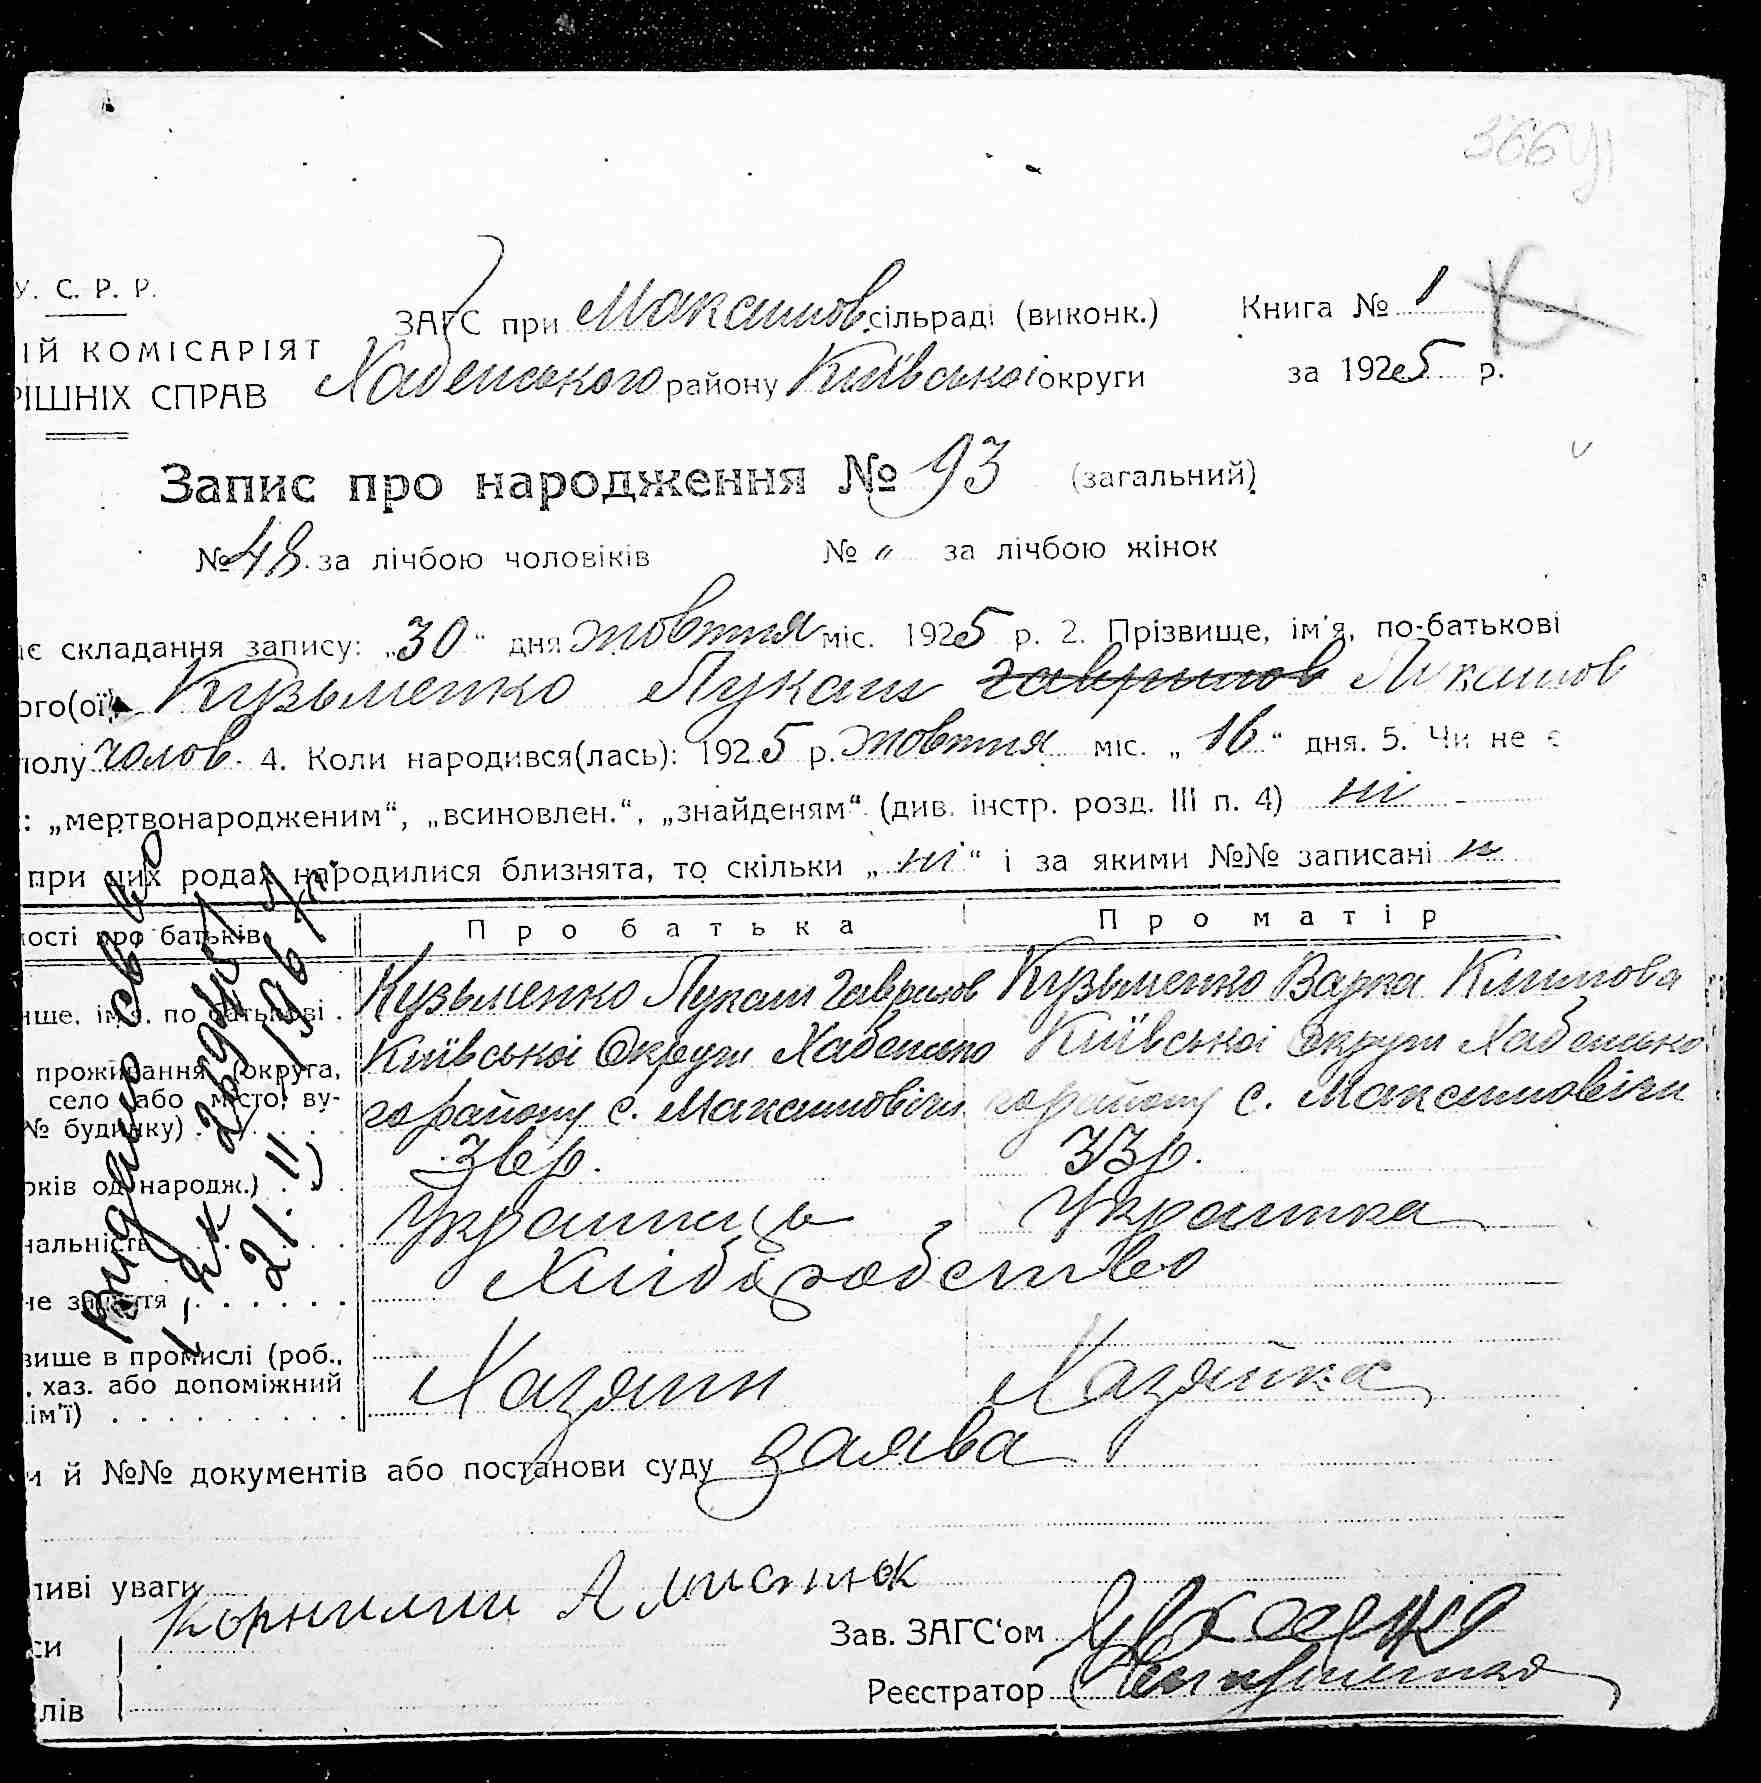 366
У. С. Р. Р.
ЗАГС при Максимов сільраді (виконк.) Книга № 1
ІЙ КОМІСАРІЯТ
Хабенського району Київської округи за 1925 р.
РІШНІХ СПРАВ
Запис про народження № 93 (загальний)
№ 48 за лічбою чоловіків № „ за лічбою жінок
іє складання запису: „30“ дня жовтня міс. 1925 р. 2. Прізвище, ім'я, по-батькові
ого(ої) Кузьменко Лукаш гаврилов Лукашов
полу чолов. 4. Коли народився(лась): 1925 р. жовтня міс. „16“ дня. 5. Чи не є
: „мертвонародженим“, „всиновлен.“, „знайденям“ (див. інстр. розд. III п. 4) ні
при цих родах народилися близнята, то скільки „ні“ і за якими №№ записані
ності про батьків Про батька Про матір
ище, ім'я, по батькові Кузьменко Лукаш Гаврилов Кузьменко Варка Климова
проживання (округа, Київської Округи Хабенсько Київської Округи Хабенсько
село або місто, ву-
№ будинку) го району с. Максимовічи го району с. Максимовічи
оків од народж.) 36 р. 33 р.
нальність Українець Українка
не заняття Хліборобство
вище в промислі (роб.,
. хаз. або допоміжний
ім'ї) Хазяин Хазяйка
и й №№ документів або постанови суду заява
Видано св-во
21.II 1967
ливі уваги
Корнилии
Зав. ЗАГС'ом
си
Реєстратор
лів